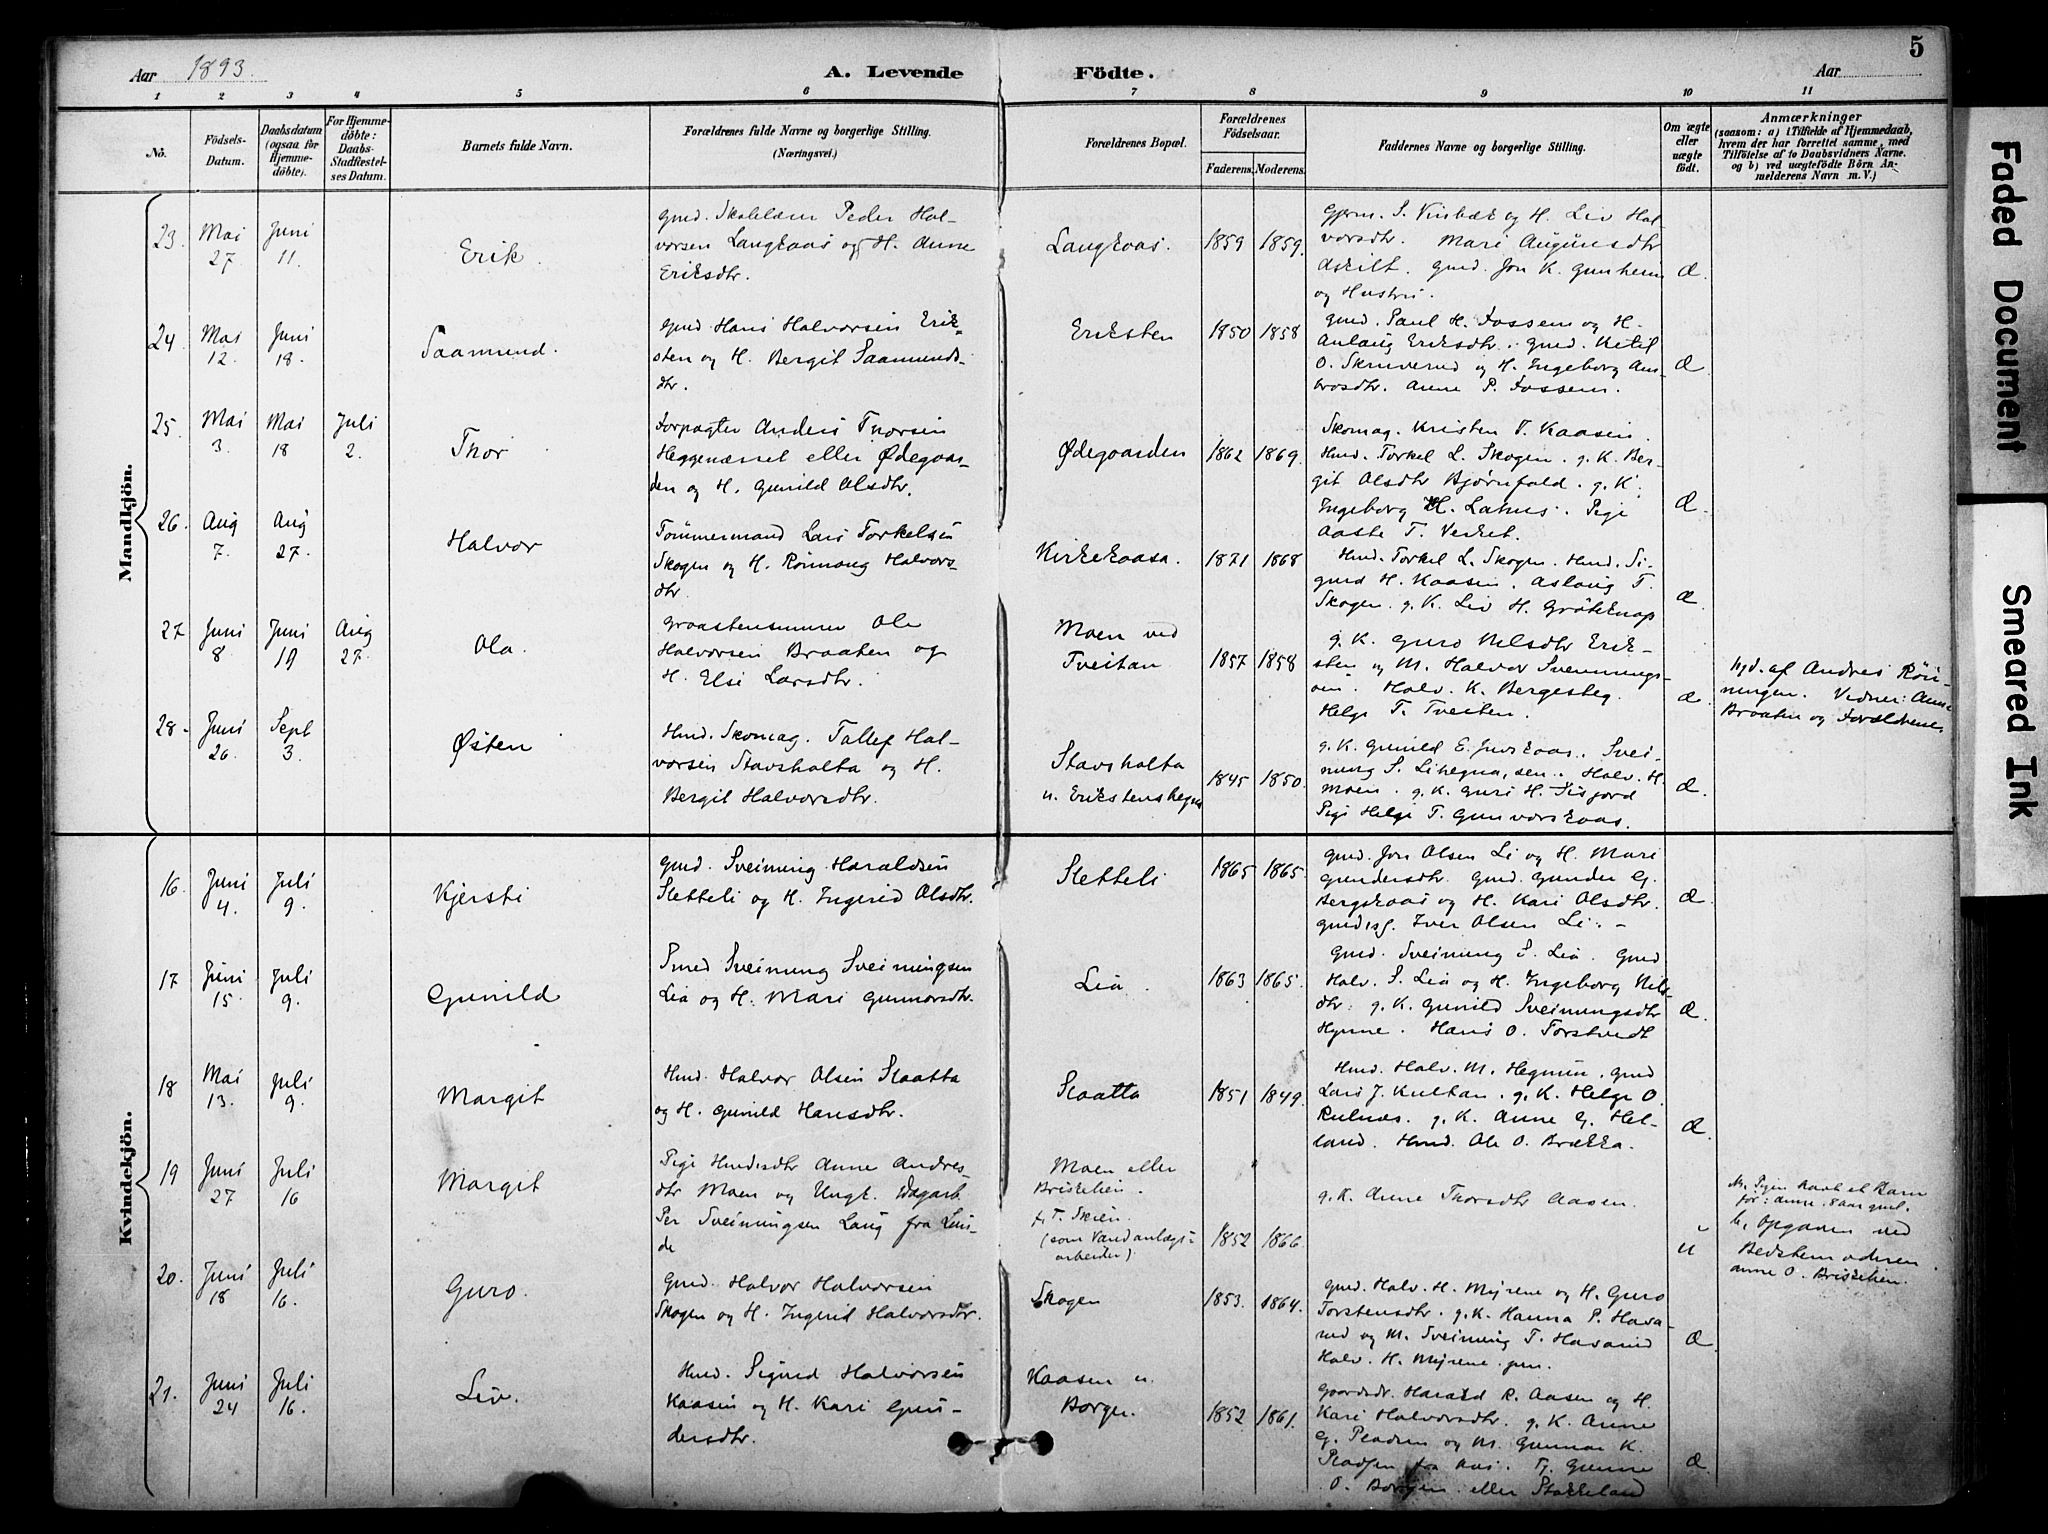 5
Aar 1893.
A. Levende Födte.
Aar
1 2 3 4 5 6 7 8 9 10 11
No.
Födsels-
Datum.
Daabsdatum
(ogsaa for
Hjemme-
döbte).
For Hjemme-
döbte:
Daabs-
Stadfæstel-
ses Datum.
Barnets fulde Navn.
Forældrenes fulde Navne og borgerlige Stilling.
(Næringsvei.)
Forældrenes Bopæl.
Forældrenes
Födselsaar.
Faderens. Moderens.
Faddernes Navne og borgerlige Stilling.
Om ægte
eller
uægte
født.
Anmærkninger
(saasom: a) i Tilfælde af Hjemmedaab,
hvem der har forrettet samme, med
Tilföielse af to Daabsvidners Navne.
og b) ved uægtefödte Börn An-
melderens Navn m. V.)
Mandkjön.
23.
Mai
27
Juni
11.
Erik.
Gmd. Skolelærer Peder Hal-
vorsen Langkaas og H. Anne
Eriksdtr.
Langkaas.
1859 1859.
Gjerm. S. Vinbæk og H. Liv Hal-
vorsdtr. Mari Augunsdtr
Askilt. Gmd. Jon K. Gunheim
og Hustru.
Æ.
24.
Mai
12.
Juni
18.
Saamund.
Gmd. Hans Halvorsen Erik-
sten og H. Bergit Saamunds-
dtr.
Eriksten
1850 1858
Gmd. Paul H. Fossem og H.
Anlaug Eriksdtr. Gmd. Ketil
O. Skruverud og H. Ingeborg Am-
brosdtr. Anne P. Fossem.
Æ.
25.
Mai
3.
Mai
18
Juli
2.
Thor
Forpagter Anders Thorsen
Heggenæsset eller Ødegaar-
den og H. Gunild Olsdtr.
Ødegaarden
1862 1869.
Skomag. Kristen T. Kaasen.
Hmd. Torkel L. Skogen. g. K. Ber-
git Olsdtr Bjørnfald. g. K.
Ingeborg H. Lahus. Pige
Aaste T. Verket.
Æ.
26.
Aug
7.
Aug
27.
Halvor
Tømmermand Lars Torkelsen
Skogen og H. Rønnaug Halvors-
dtr.
Kirkekaasa.
1871 1868
Hmd. Torkel L. Skogen. Hmd. Si-
gurd H. Kaasen. Aslaug T.
Skogen. g. K. Liv H. Grøteknap
Æ.
27
Juni
8
Juni
19
Aug
27.
Ola.
Graastensmurer Ole
Halvorsen Braaten og
H. Else Larsdtr.
Moen ved
Tveitan
1857 1858
g. K. Guro Nelsdtr Erik-
sten og M. Halvor Svennungs-
øen. Halv. K. Bergesteg.
Helge T. Tveiten.
Æ.
Hjd. af Andres Røn-
ningen. Vidner: Anne
Braaten og Forældrene.
28.
Juni
26.
Sept
3.
Østen
Hmd. Skomag. Tallef Hal-
vorsen Stavsholta og H.
Bergit Halvorsdtr.
Stavsholta
u. Erikstenshegna
1845 1850.
g. K. Gunild E. Juvskaas. Svei-
nung S. Lihegna, sen. Halv. H.
Moen. g. K. Guri H. Sisjord
Pige Helge T. Gunvorskaas.
Æ.
Kvindekjön.
16.
Juni
4.
Juli
9.
Kjersti
Gmd. Sveinung Haraldsen
Sletteli og H. Ingerid Olsdtr.
Sletteli
1865 1865.
Gmd. Jon Olsen Li og H. Mari
Gundersdtr. Gmd. Gunder G.
Bergskaas og H. Kari Olsdtr.
Gmdsg. Iver Olsen Li.
Æ.
17
Juni
15.
Juli
9.
Gunild
Smed Sveinung Sveinungsen
Lia og H. Mari Gunnarsdtr.
Lia.
1863 1865.
Gmd. Sveinung S. Lia. Gmd
Halv. S. Lia og H. Ingeborg Nils-
dtr. g. K. Gunild Sveinungsdtr
Hynne. Hans O. Torstvedt
Æ.
18
Mai
13.
Juli
9.
Margit
Hmd. Halvor Olsen Slaatta
og H. Gunild Hansdtr.
Slaatta
1851 1849.
Hmd. Halv. M. Hegnun. Gmd
Lars J. Kultan. g. K. Helge O.
Rulnæs. g. K. Anne G. Hel-
land. Hmd. Ole O. Brækka.
Æ.
19
Juni
27
Juli
16
Margit
Pige Hmdsdtr Anne Andres-
dtr Moen og Ungk. Dagarb.
Per Sveinungsen Laug fra Lun-
de
Moen eller
Briskelien.
f. T. Skien.
(som Vandanlægs-
arbeider)
1852 1866.
g. K. Anne Thorsdtr Aasen.
u
M. Pigen havt et Barn
før: Anne, 8 aar gml.
b. Opgaven ved
Bedstemoderen
Anne O. Briskelien.
20.
Juni
18
Juli
16.
Guro.
Gmd. Halvor Halvorsen
Skogen og H. Ingerid Halvorsdtr.
Skogen
1853. 1864.
Gmd. Halv. H. Myrene og H. Guro
Torstensdtr. g. K. Hanna P. Hava-
rud og M. Sveinung T. Havarud
Halv. H. Myrene. jun.
Æ.
21.
Juni
24
Juli
16.
Liv.
Hmd. Sigurd Halvorsen
Kaasen og H. Kari Gun-
dersdtr.
Kaasen u.
Borgen.
1852. 1861.
Gaardsdr. Harald R. Aasen og H.
Kari Halvorsdtr. g. K. Anne
G. Pladsen og M. Gunnar K.
Pladsen fra Aas. Tj. Gunne
O. Borgen eller Stokkeland
Æ.
Faded Document
Smeared Ink